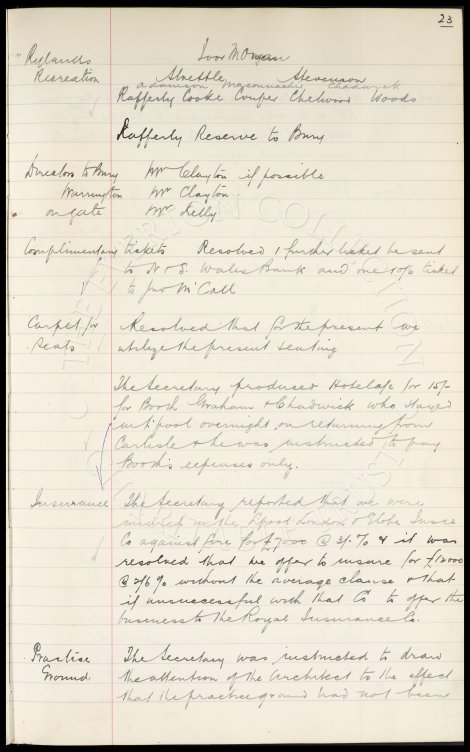 23
Rylands Ivor M Owen
Recreation Strettle Stevenson
Adamson Meunier Chadwick
Rafferty Cooke Couper Chetwood Woods
Rafferty Reserve to Bury
Directors to Bury Mr Clayton if possible
Warrington Mr Clayton
on gate Mr Kelly
Complimentary tickets Resolved 1 further ticket be sent
to N & S. Wales Bank and one 10/6 ticket
to Jno McCall
Carpet for Resolved that for the present we
Seats utilize the present seating
The Secretary produced Hotel a/c for 15/-
for Booth Graham & Chadwick who stayed
in L'pool overnight on returning from
Carlisle & he was instructed to pay
Booth's expenses only.
Insurance The Secretary reported that we were
insured with the L'pool London & Globe Insce
Co against fire for £7000 @ 3/- % & it was
resolved that we offer to insure for £12000
@ 2/6 % without the average clause & that
if unsuccessful with that Co to offer the
business to the Royal Insurance Co.
Practise The Secretary was instructed to draw
Ground the attention of the Architect to the effect
that the practice ground had not been
EVERTON COLLECTION